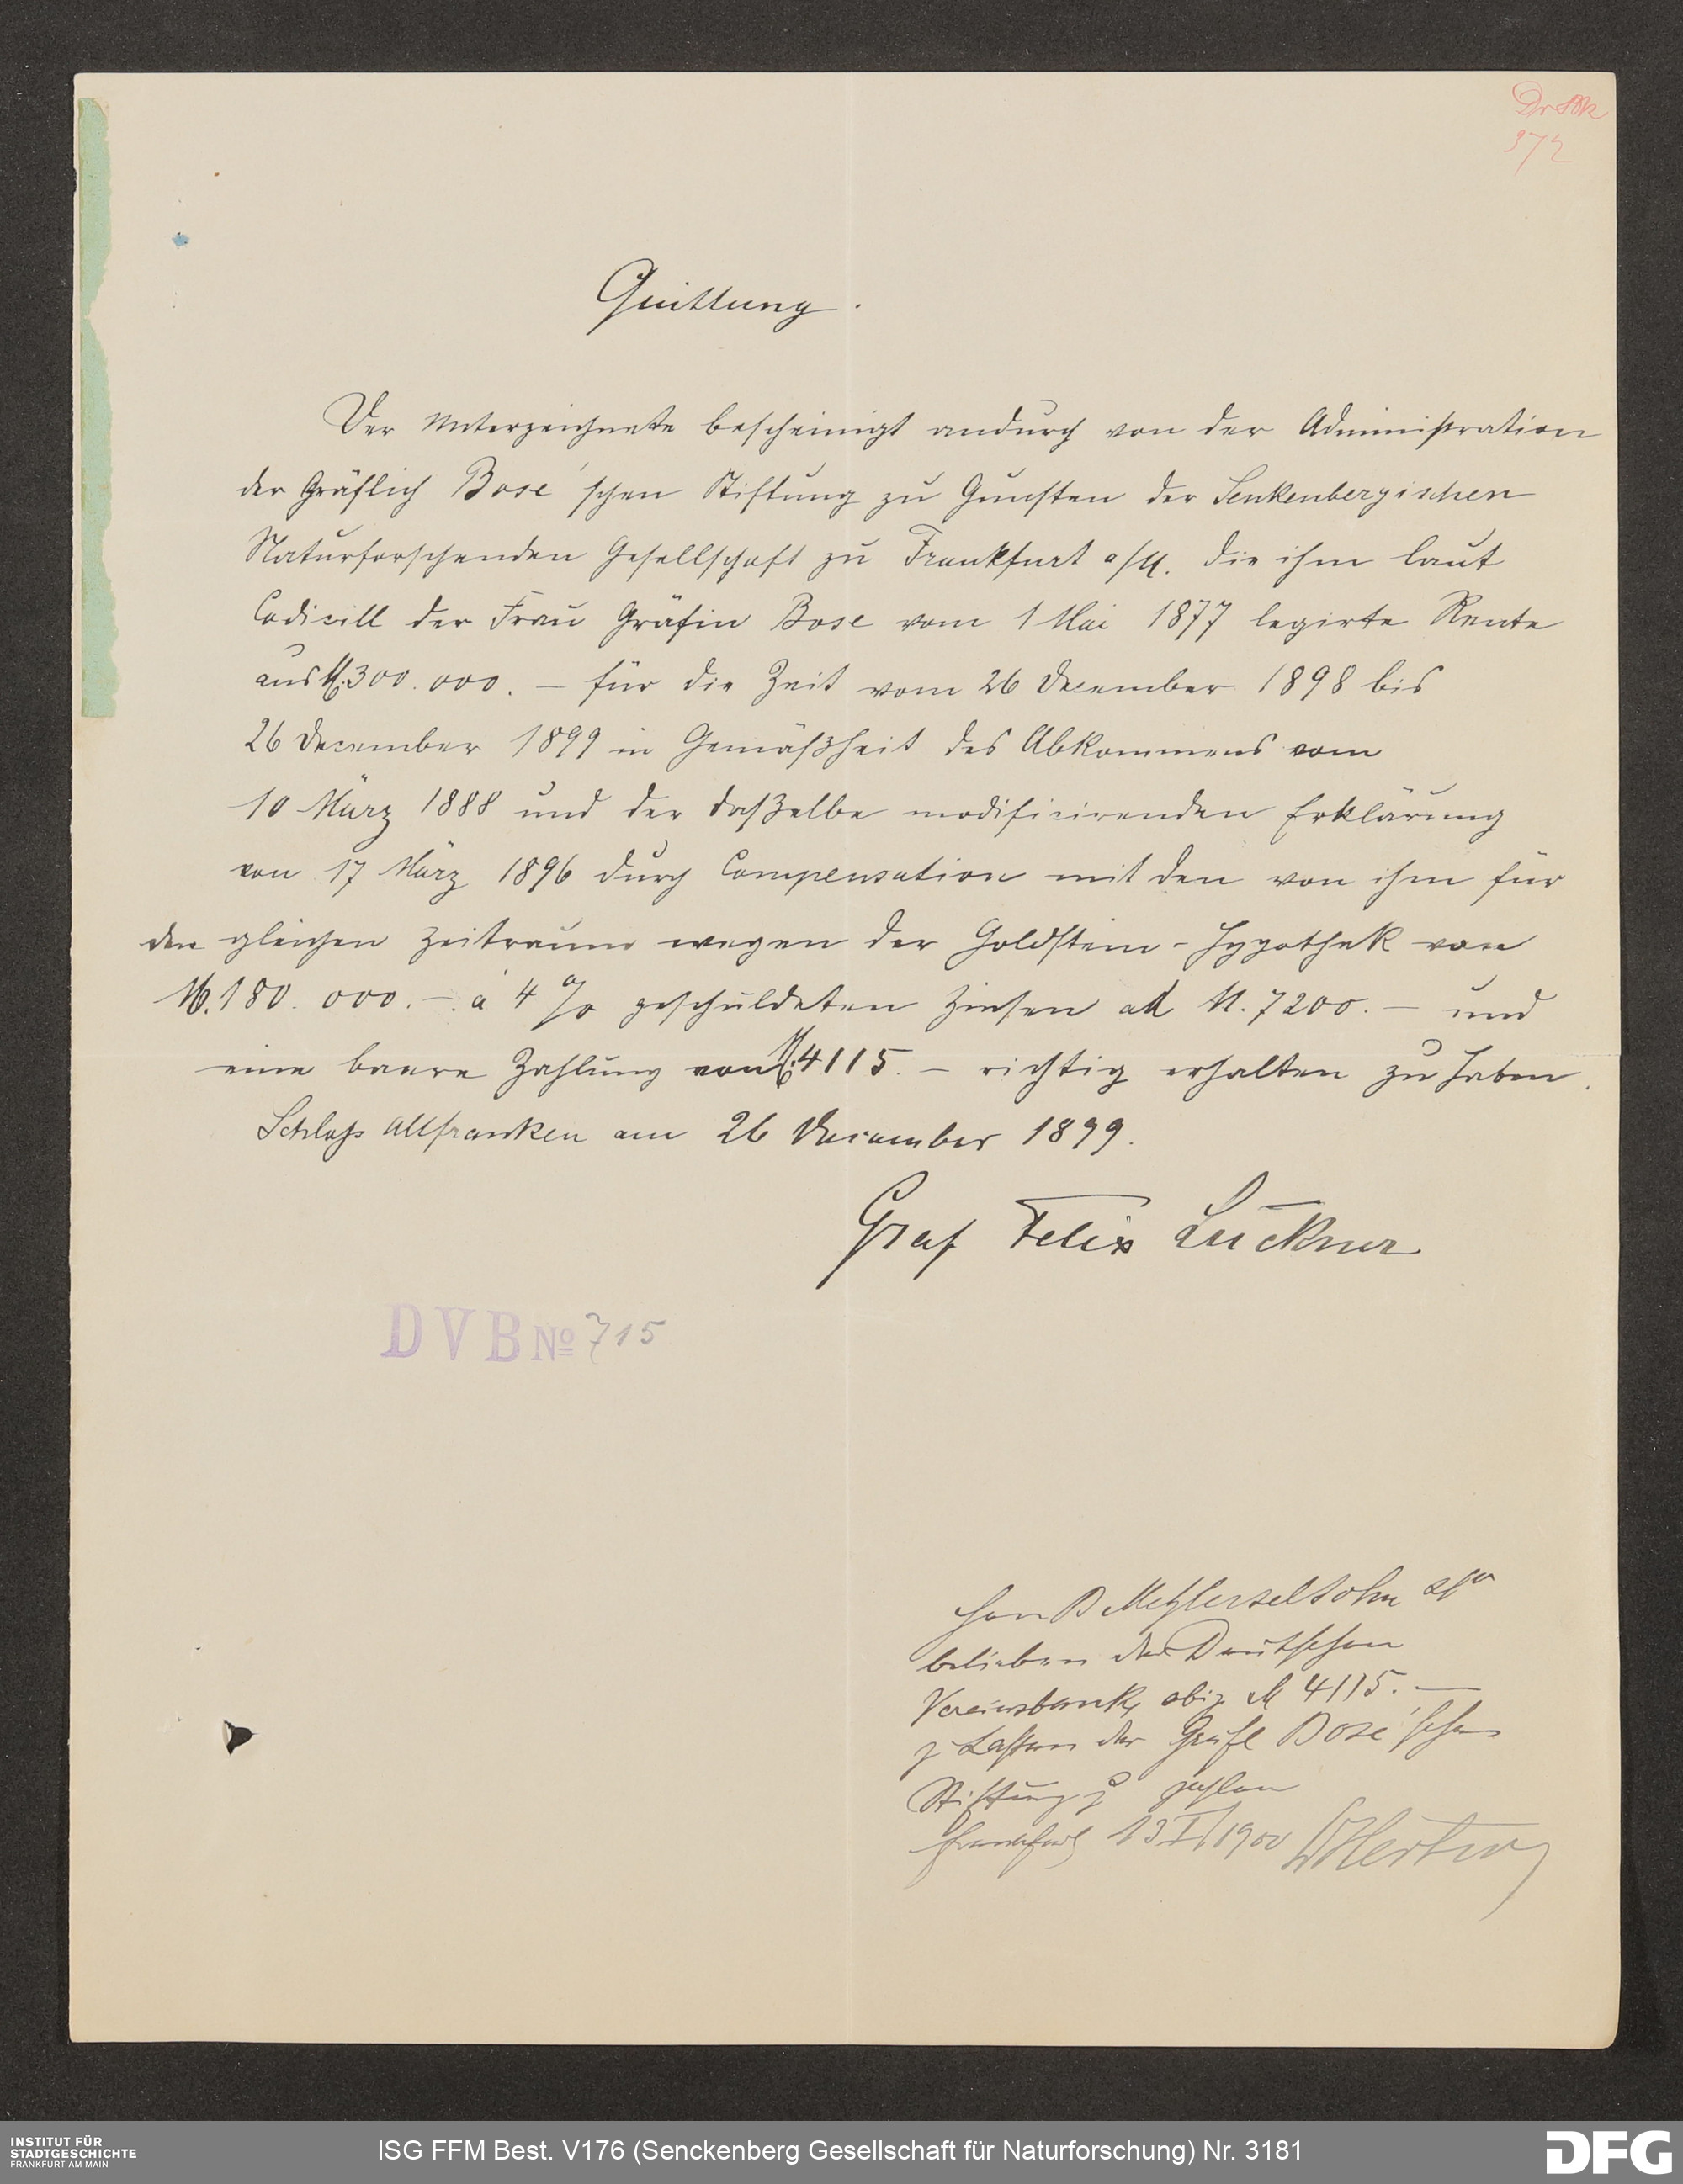 972
Quittung.
Der Unterzeichnete bescheinigt andurch von der Administration
der Gräflich Bose'schen Stiftung zu Gunsten der Senkenbergischen
Naturforschenden Gesellschaft zu Frankfurt a/M. die ihm laut
Codicill der Frau Gräfin Bose vom 1 Mai 1877 legirte Rente
aus M. 300.000. – für die Zeit vom 26 December 1898 bis
26 December 1899 in Gemäßheit des Abkommens vom
10 März 1888 und der daßselbe modificirenden Erklärung
von 17 März 1896 durch Compensation mit den von ihm für
den gleichen Zeitraum wegen der Goldstein-Hypothek von
M. 180.000. – à 4 % geschuldeten Zinsen ad M. 7200. – und
eine baare Zahlung von M. 4115. – richtig erhalten zu haben.
Schloß Altfranken am 26 December 1899.
Graf Felix Luckner
DVB No 715
B Metzler sel Sohn
belieben der Deutschen
Vereinsbank, obig. M 4115. –
z Lasten der Gräfl Bose'schen
Stiftung z zahlen
Frankfurt 13 I 1900 WHertwig
INSTITUT FÜR
STADTGESCHICHTE
FRANKFURT AM MAIN
ISG FFM Best. V176 (Senckenberg Gesellschaft für Naturforschung) Nr. 3181
DFG